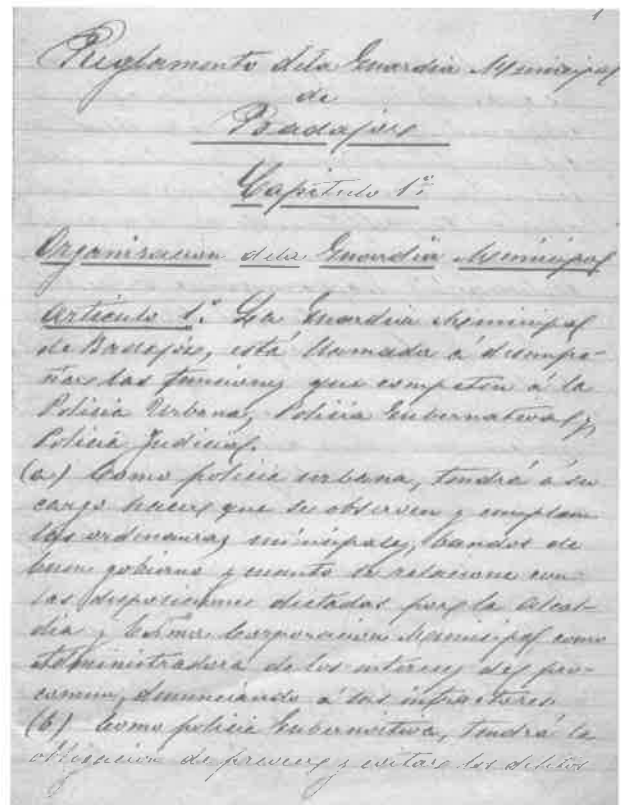 1
Reglamento dela Guardia Municipal
de
Badajoz
Capitulo 1º
Organizacion dela Guardia Municipal
Articulo 1º. La Guardia Municipal
de Badajoz, está llamada á desempe-
ñar las funciones que competen á la
Policia Urbana, Policia Gubernativa y
Policia Judicial.
(a) Como policia urbana, tendrá á su
cargo hacer que se observen y cumplan
las ordenanzas municipales, bandos de
buen gobierno y cuanto se relacione con
las disposiciones dictadas por la Alcal-
dia y Corporacion Municipal como
Administradora de los intereses del pro-
comun, denunciando á sus infractores.
(b) Como policia Gubernativa, tendrá la
obligacion de preveer y evitar los delitos